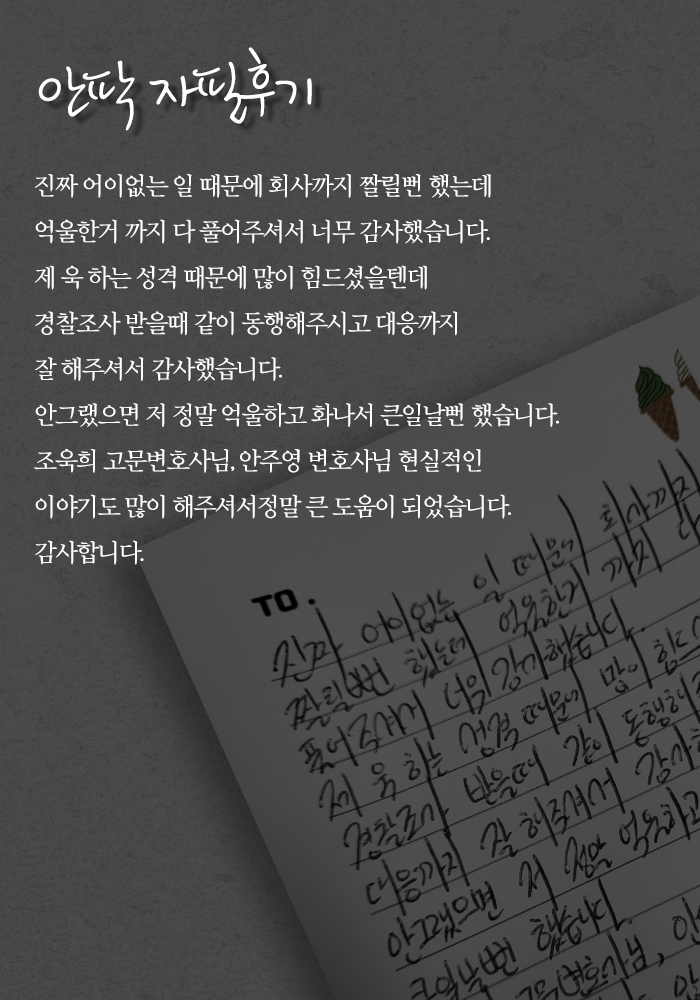 안팍 자필후기
진짜 어이없는 일 때문에 회사까지 짤릴뻔 했는데
억울한거 까지 다 풀어주셔서 너무 감사했습니다.
제 욱 하는 성격 때문에 많이 힘드셨을텐데
경찰조사 받을때 같이 동행해주시고 대응까지
잘 해주셔서 감사했습니다.
안그랬으면 저 정말 억울하고 화나서 큰일날뻔 했습니다.
조욱희 고문변호사님, 안주영 변호사님 현실적인
이야기도 많이 해주셔서정말 큰 도움이 되었습니다.
감사합니다.
TO.
진짜 어이없는 일 때문에 회사까지
짤릴뻔 했는데 억울한거 까지 다
풀어주셔서 너무 감사했습니다.
제 욱 하는 성격 때문에 많이 힘드
경찰조사 받을때 같이 동행해
대응까지 잘 해주셔서 감사
안그랬으면 저 정말 억울하고
큰일날뻔 했습니다.